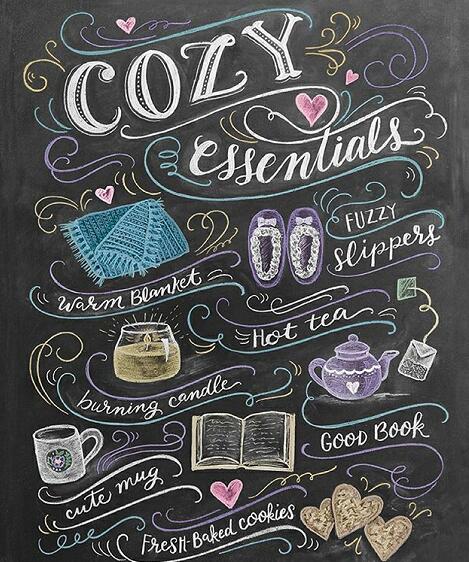 COZY
essentials
FUZZY
slippers
Warm Blanket
Hot tea
burning candle
GOOD BOOK
cute mug
FRESH-BAKED cookies